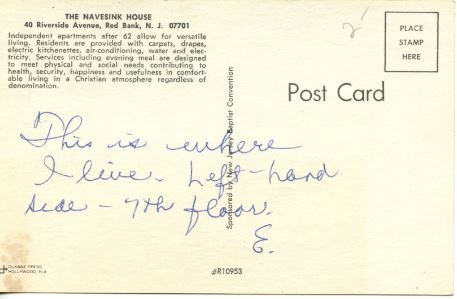 THE NAVESINK HOUSE
40 Riverside Avenue, Red Bank, N. J. 07701
Independent apartments after 62 allow for versatile
living. Residents are provided with carpets, drapes,
electric kitchenettes, air-conditioning, water and elec-
tricity. Services including evening meal are designed
to meet physical and social needs contributing to
health, security, happiness and usefulness in comfort-
able living in a Christian atmosphere regardless of
denomination.
PLACE
STAMP
HERE
Post Card
Sponsored by New Jersey Baptist Convention
This is where
I live. Left-hand
side - 7th floor.
E.
PRESS
HOLLYWOOD FLA
R10953